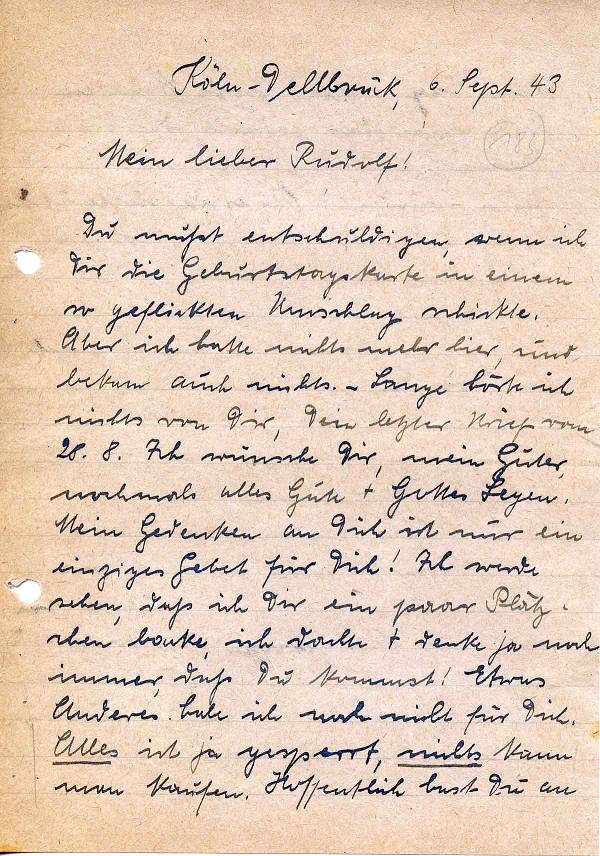 Köln-Dellbrück, 6. Sept. 43
186
Mein lieber Rudolf!
Du mußt entschuldigen, wenn ich
Dir die Geburtstagskarte in einem
so geflickten Umschlag schickte.
Aber ich hatte nichts mehr hier, und
bekam auch nichts. - Lange hörte ich
nichts von Dir, Dein letzter Brief vom
28. 8. Ich wünsche Dir, mein Guter,
nochmals alles Gute + Gottes Segen.
Mein Gedenken an Dich ist nur ein
einziges Gebet für Dich! Ich werde
sehen, daß ich Dir ein paar Plätz-
chen backe, ich dachte + denke ja noch
immer, daß Du kommst! Etwas
Anderes habe ich noch nicht für Dich.
Alles ist ja gesperrt, nichts kann
man kaufen. Hoffentlich hast Du an